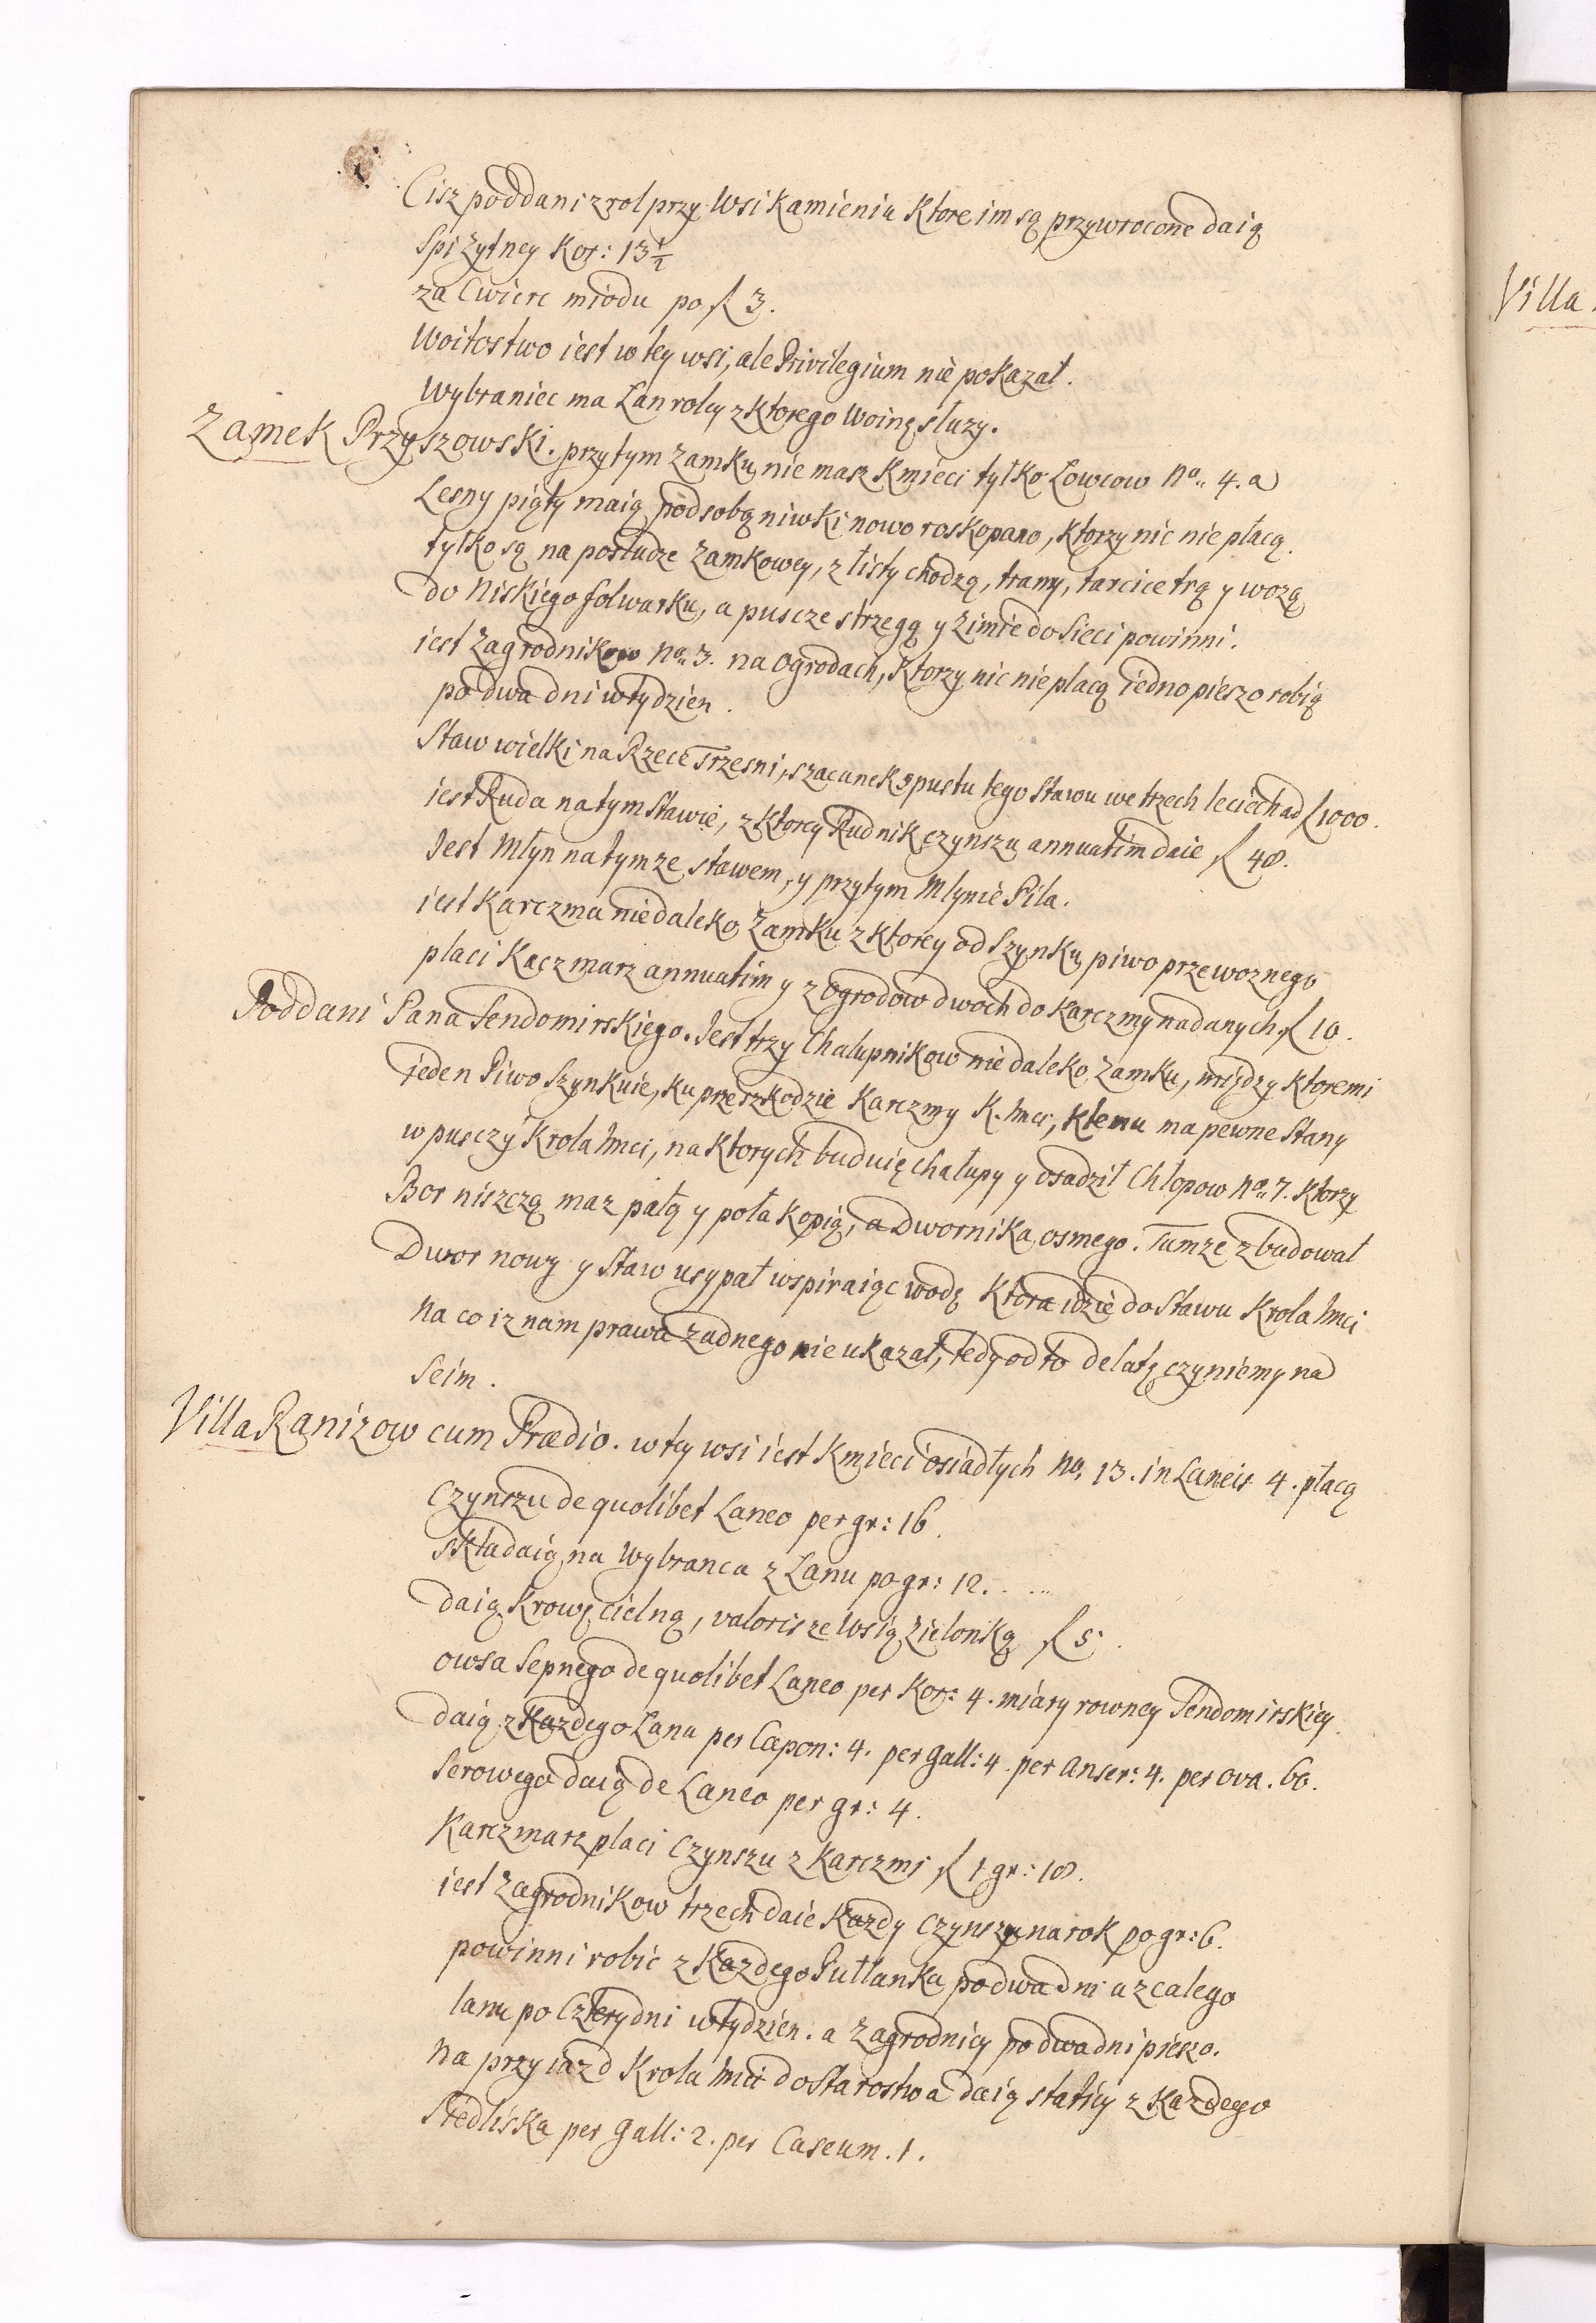 Cisz poddani z rol przy Wsi Kamieniu Ktore im są przywrocone daią
Spi Zytney Kor: 13½
za Cwierc miodu po f 3.
Woitostwo iest w tey wsi, ale Privilegium nie pokazał.
Wybraniec ma Lan roley z Ktorego Woinę słuzy.
Zamek Przyszowski. przy tym Zamku nie masz Kmieci tylko Łowcow Nº 4. a
Lesny piąty maią pod sobą niwki nowo roskopano, Ktorzy nic nie płacą.
tylko są na posłudze Zamkowey, z listy chodzą, tramy, tarcice trą y wozą
do Niskiego folwarku, a puscze strzegą y Zimie do Sieci powinni.
iest Zagrodnikow Nº 3. na Ogrodach, Ktorzy nic nie płacą iedno pieszo robią
po dwa dni w tydzien.
Staw wielki na Rzece Trzesni, szacunek spustu tego Stawu we trzech leciech ad f 1000.
iest Ruda na tym Stawie, z Ktorey Rudnik czynszu annuatim daie f 48.
Jest Młyn na tymze stawem, y przy tym Młynie Piła.
iest Karczma niedaleko Zamku z Ktorey od Szynku piwo przewoznego
płaci Kaczmarz annuatim y z ogrodow dwoch do Karczmy nadanych f 10.
Poddani Pana Sendomirskiego. Jest trzy Chałupnikow niedaleko Zamku, między Ktoremi
ieden Piwo Szynkuie, ku przeszkodzie Karczmy K. Jmci, Ktemu ma pewne Stany
w pusczy Krola Jmci, na Ktorych buduię chałupy y osadził Chłopow Nº 7. Ktorzy
Bor niszczą maz palą y pola kopią, a Dwornika osmego. Tamze zbudował
Dwor nowy y Staw usypał wspiraiąc wodę Ktora idzie do Stawu Krola Jmci
na co iz nam prawa zadnego nie ukazał, tedy od to delatę czyniemy na
Seim.
Villa Ranizow cum Prædio. w tey wsi iest Kmieci osiadłych No. 13. in Laneis 4. płacą
Czynszu de quolibet Laneo per gr: 16.
składaią na Wybranca z Lanu po gr: 12. . ...
daią Krowę cielną, valoris ze Wsią Zielonką f 5.
owsa Sepnego de quolibet Laneo per Kor: 4. miary rowney Sendomirskiey.
daią z Kazdego Lanu per Capon: 4. per Gall: 4. per Anser: 4. per ova. 60.
Serowego daią de Laneo per gr: 4.
Karczmarz płaci Czynszu z Karczmi f 1 gr: 18.
iest Zagrodnikow trzech daie Kazdy Czynszu na rok po gr: 6.
powinni robic z Kazdego Pułłanka po dwa dni a z całego
lanu po Cztery dni w tydzien. a Zagrodnicy po dwa dni pieszo.
Na przyiazd Krola Jmci do Starostwa daią staticy z Kazdego
Siedliska per Gall: 2. per Caseum. 1.
Villa